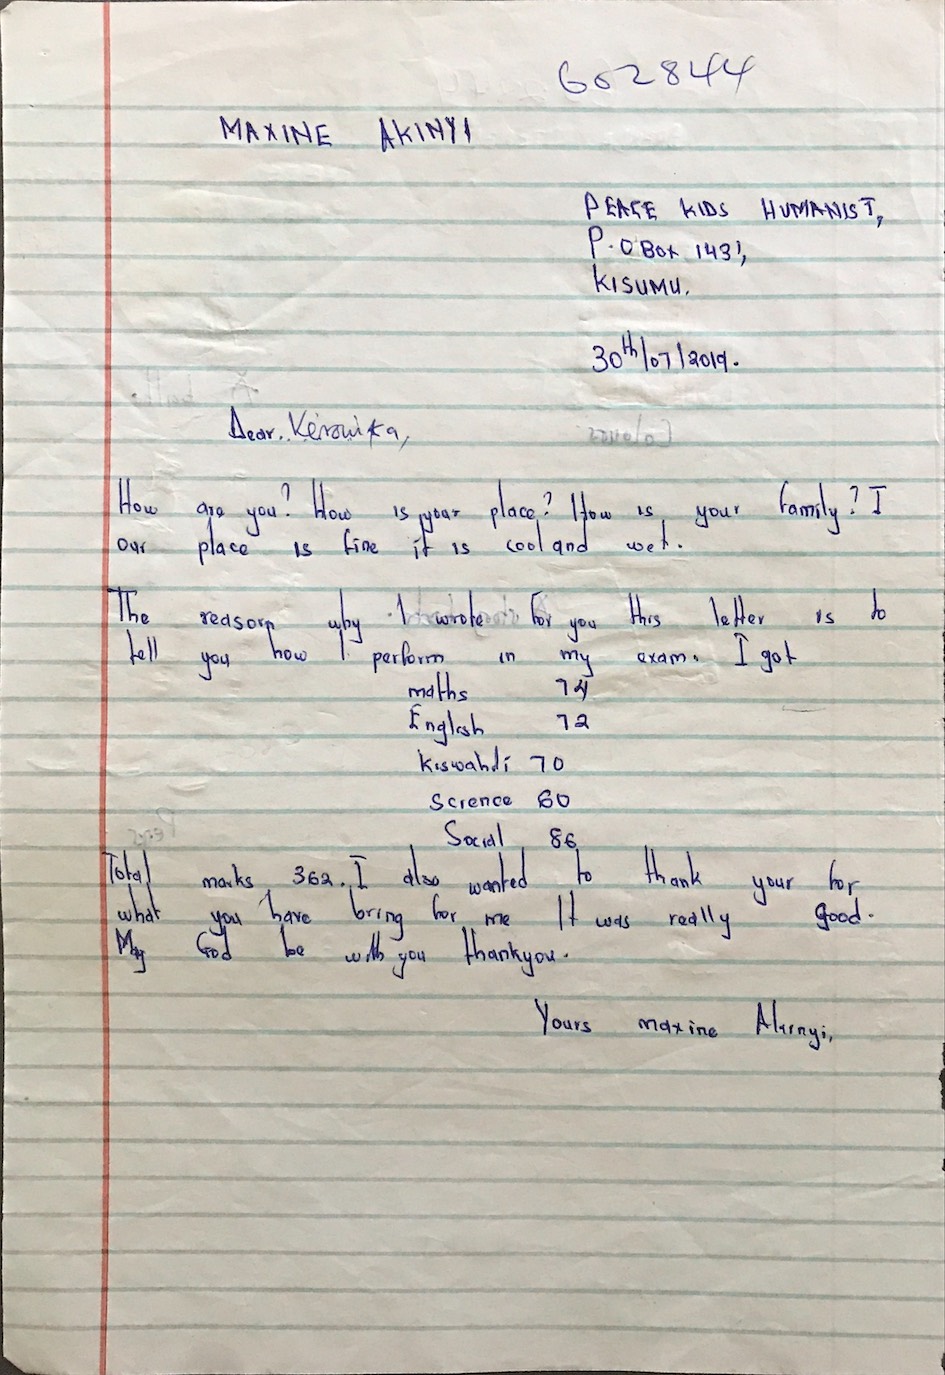 602844
MAXINE AKINYI
PEACE KIDS HUMANIST,
P.O BOX 1431,
KISUMU.
30th/07/2019.
Dear.
How are you? How is your place? How is your family? I
our place is fine it is cool and wet.
The reason why I wrote for you this letter is to
tell you how I perform in my exam. I got
maths 74
English 72
Kiswahili 70
Science 60
Social 86
Total marks 362. I also wanted to thank your for
what you have bring for me It was really good.
May God be with you thankyou.
Yours maxine Akinyi,